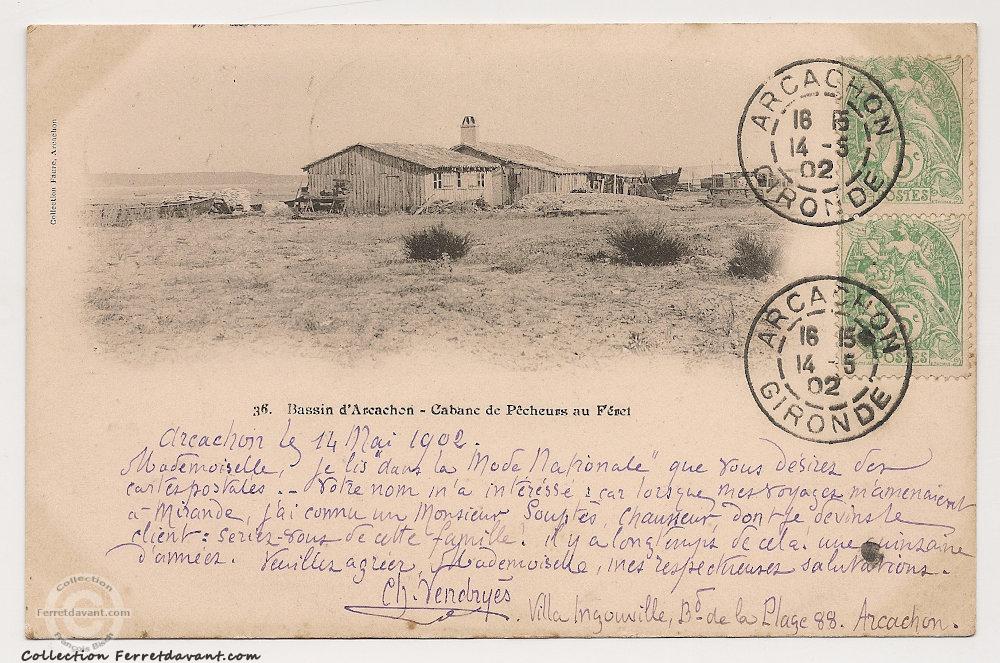 Collection Faure, Arcachon
ARCACHON
16 15
14 - 5
02
GIRONDE
5 c
POSTES
ARCACHON
16 15
14 - 5
02
GIRONDE
POSTES
36. Bassin d'Arcachon - Cabane de Pêcheurs au Féret
Arcachon le 14 Mai 1902.
Mademoiselle, je lis "dans la Mode Nationale" que vous désirez des
cartes postales. - Votre nom m'a intéressé : car lorsque mes voyages m'amenaient
à Mirande, j'ai connu un Monsieur Souptès, chausseur, dont je devins le
client : seriez-vous de cette famille ! il y a longtemps de cela ! une quinzaine
d'années. Veuillez agréer, Mademoiselle, mes respectueuses salutations.
Ch. Vendryès
Villa Ingouville, Bd de la Plage 88. Arcachon.
Collection
Ferretdavant.com
François Bisch
Collection Ferretdavant.com